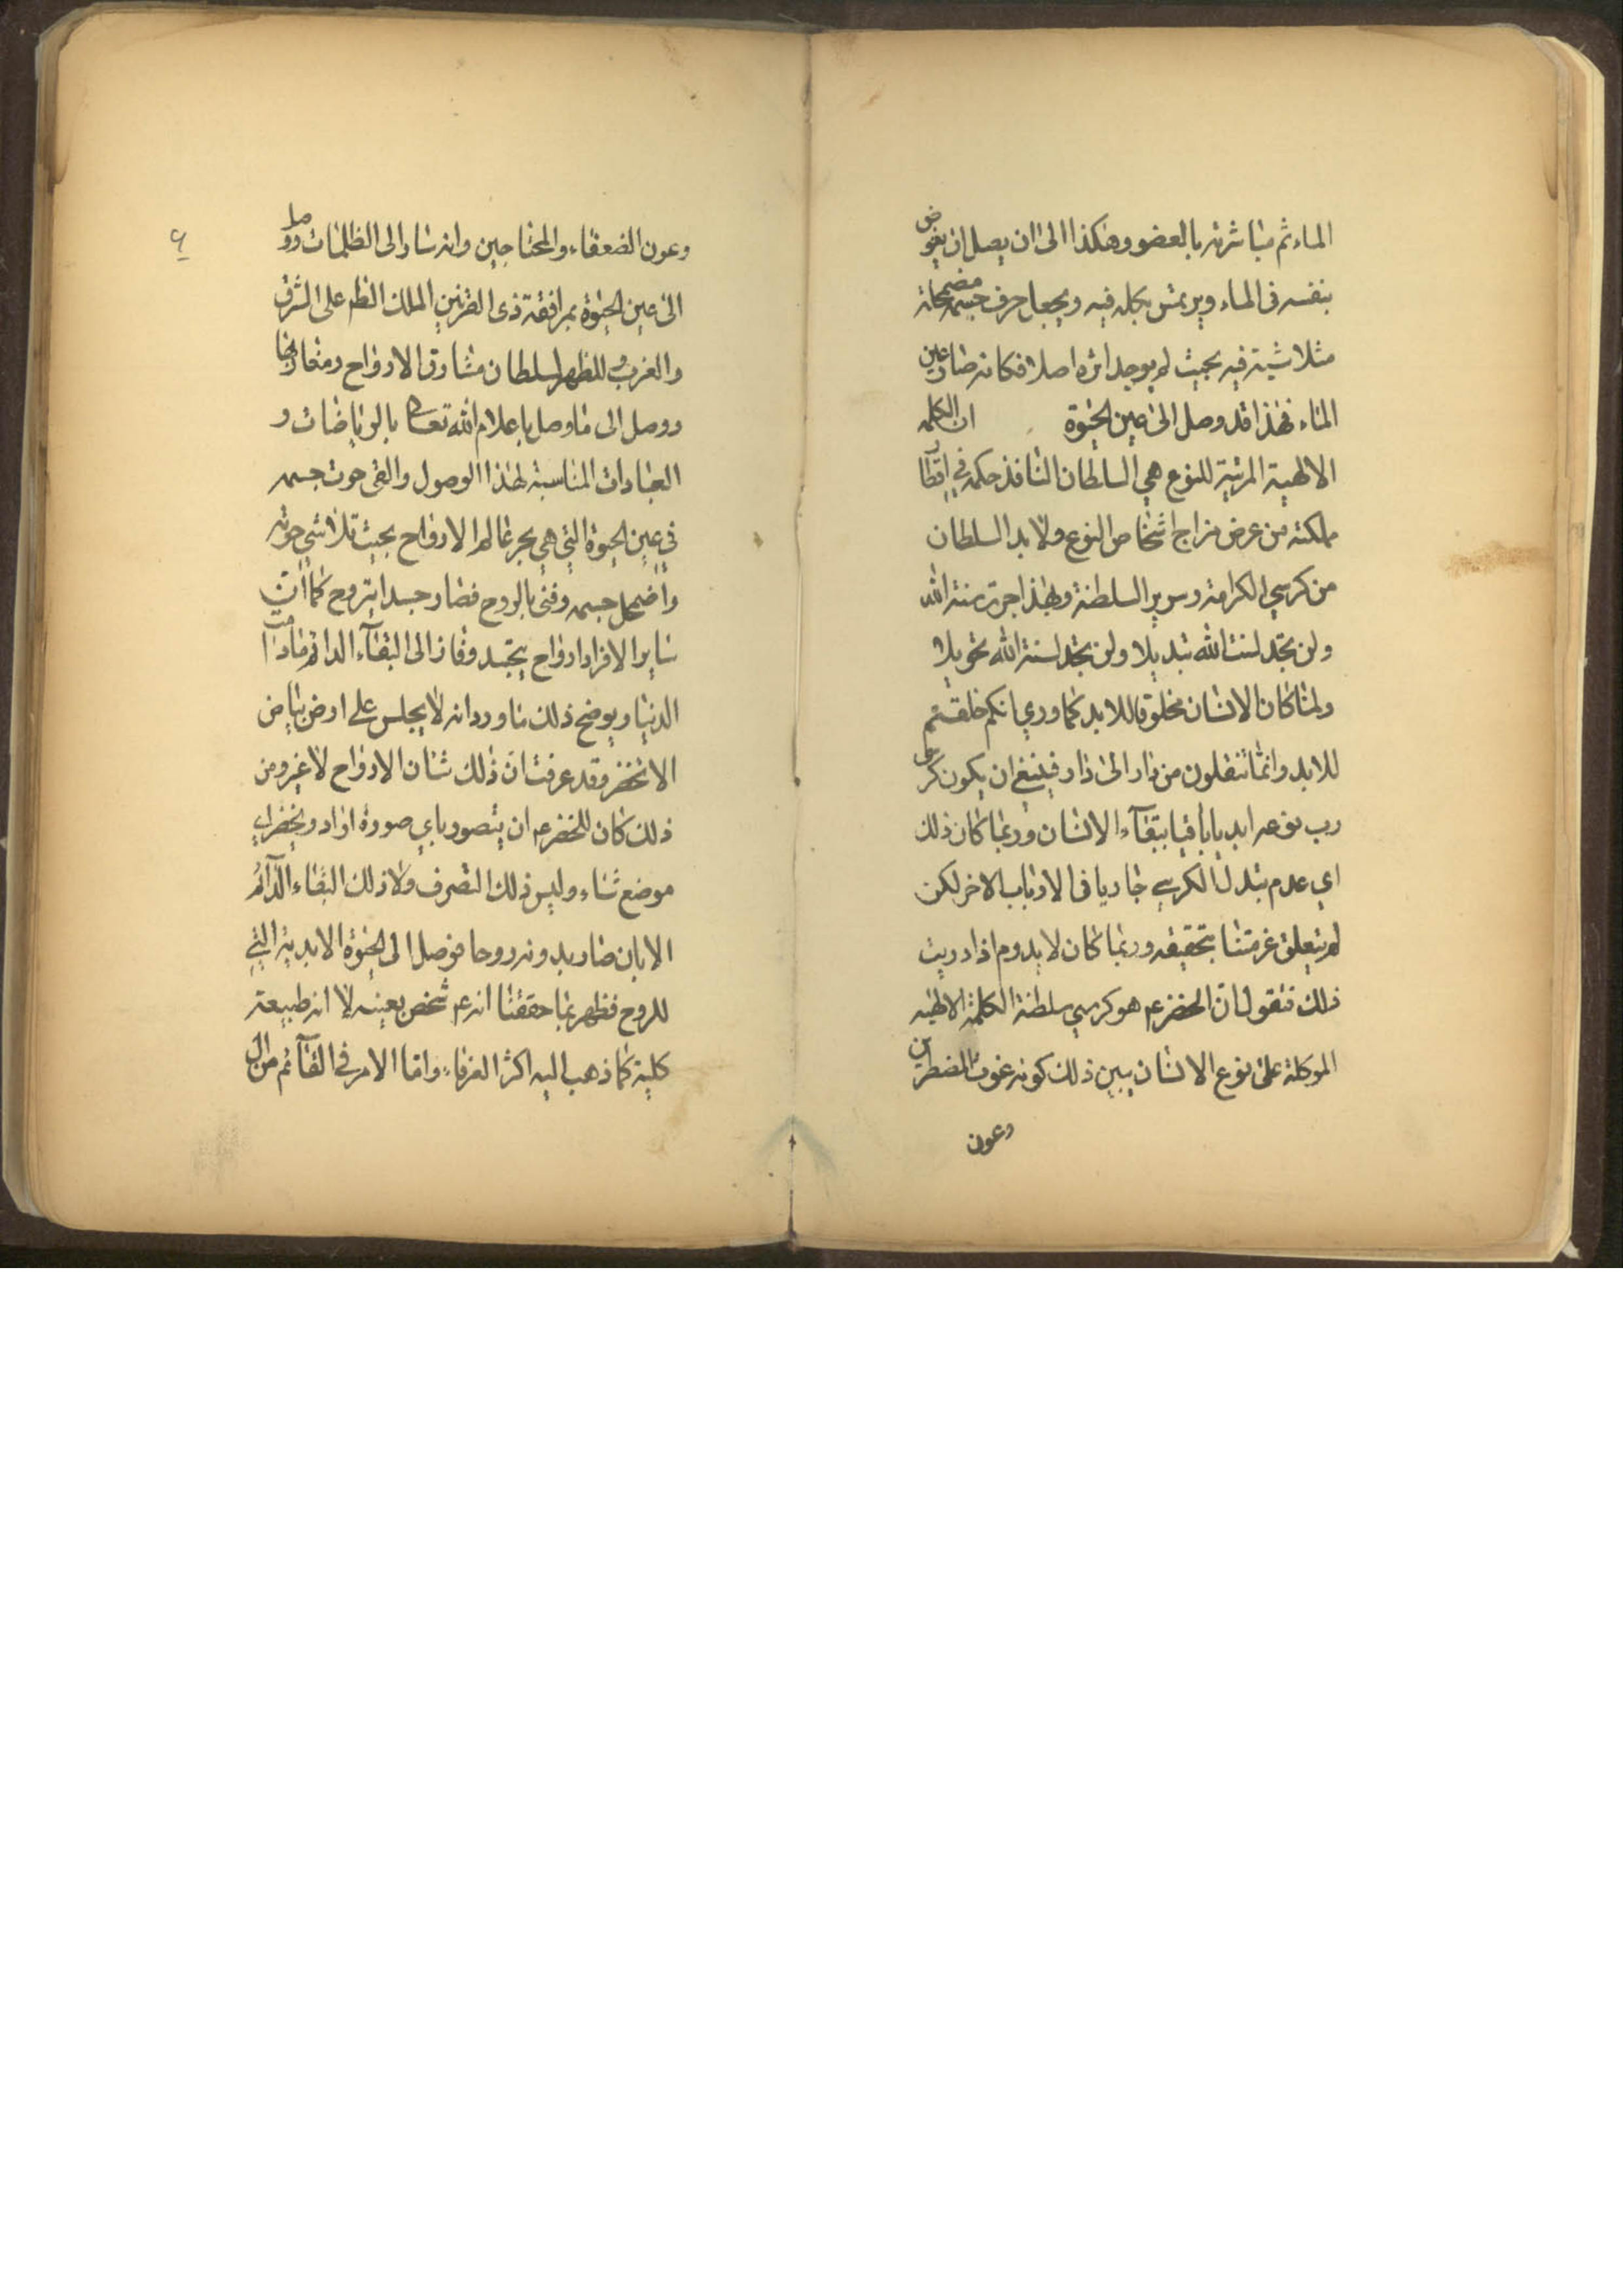 الماء ثم مباشرته بالعضو وهكذا الى ان يصل ان يغوض
بنفسه فى الماء ويرتمس بكله فيه ويجعل حرف جسمه مضمحلة
متلاشية فيه بحيث لم يوجد اثره اصلا فكانه صار عين
الماء فهذا قد وصل الى عين الحيوة ان الكلمه
الالهية المربية للنوع هي السلطان النافذ حكمه في اقطار
مملكته من عرض مزاج اشخاص النوع ولابد السلطان
من كرسي الكرامة وسرير السلطنة وبهذا جرت سنة الله
ولن تجد لسنت الله تبديلا ولن تجد لسنة الله تحويلا
ولما كان الانسان مخلوقا للابد كما وري انكم خلقتم
للابد وانما تنقلون من دار الى دار فينبغ ان يكون كرسى
رب نوعه ابديا باقيا ببقآء الانسان وربما كان ذلك
اي عدم تبدل الكرسي جاريا فى الارباب الاخر لكن
لم يتعلق غرضنا بتحقيقه وربما كان لا يدوم اذا دريت
ذلك فنقول ان الخضرعم هو كرسي سلطنة الكلمة الالهيه
الموكلة على نوع الانسان يبين ذلك كونه غوث المضطرين
وعون
۶
وعون الضعفاء والمحتاجين وانه سار الى الظلمات ووصل
الى عين الحيوة بمرافقة ذى القرنين الملك الظهر على الشرق
والغرب المظهر لسلطان مشارق الارواح ومغاربها
ووصل الى ما وصل باعلام الله تعالى بالرياضات و
العبادات المناسبة لهذا الوصول والقى حوت جسمه
في عين الحيوة التي هي بحر عالم الارواح بحيث تلاشي حوته
واضمحل جسمه وفنى بالروح فصار جسدا بتروح كما ان
ساير الافراد ارواح بتجسد وفاز الى البقآء الدائم مادامت
الدنيا ويوضح ذلك ما ورد انه لا يجلس على ارض بياض
الا تخضر وقد عرفت ان ذلك شان الارواح لا غير ومن
ذلك كان للخضرعم ان يتصور باي صورة اراد ويحضر اي
موضع شاء وليس ذلك التصرف ولا ذلك البقاء الدآئم
الا بان صار بدونه روحا فوصل الى الحيوة الابدية التي
للروح فظهر بما حققنا انه عم شخص بعينه لا انه طبيعة
كلية كما ذهب اليه اكثر العرفاء واما الامر في القآئم من ال